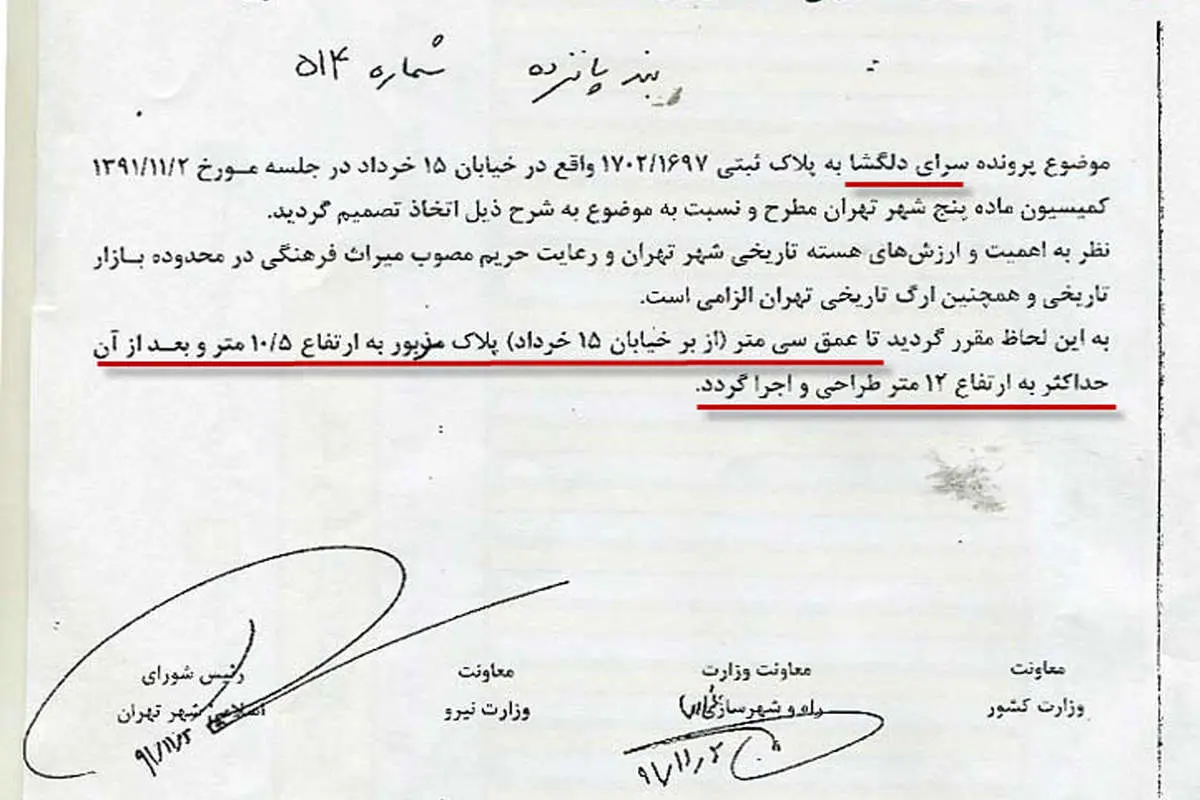 بند پانزده شماره ۵۱۴
موضوع پرونده سرای دلگشا به پلاک ثبتی ۱۷۰۲/۱۶۹۷ واقع در خیابان ۱۵ خرداد در جلسه مورخ ۱۳۹۱/۱۱/۲
کمیسیون ماده پنج شهر تهران مطرح و نسبت به موضوع به شرح ذیل اتخاذ تصمیم گردید.
نظر به اهمیت و ارزش‌های هسته تاریخی شهر تهران و رعایت حریم مصوب میراث فرهنگی در محدوده بازار
تاریخی و همچنین ارگ تاریخی تهران الزامی است.
به این لحاظ مقرر گردید تا عمق سی متر (از بر خیابان ۱۵ خرداد) پلاک مزبور به ارتفاع ۱۰/۵ متر و بعد از آن
حداکثر به ارتفاع ۱۲ متر طراحی و اجرا گردد.
معاونت معاونت وزارت معاونت رئیس شورای
وزارت کشور راه و شهرسازی وزارت نیرو شهر تهران